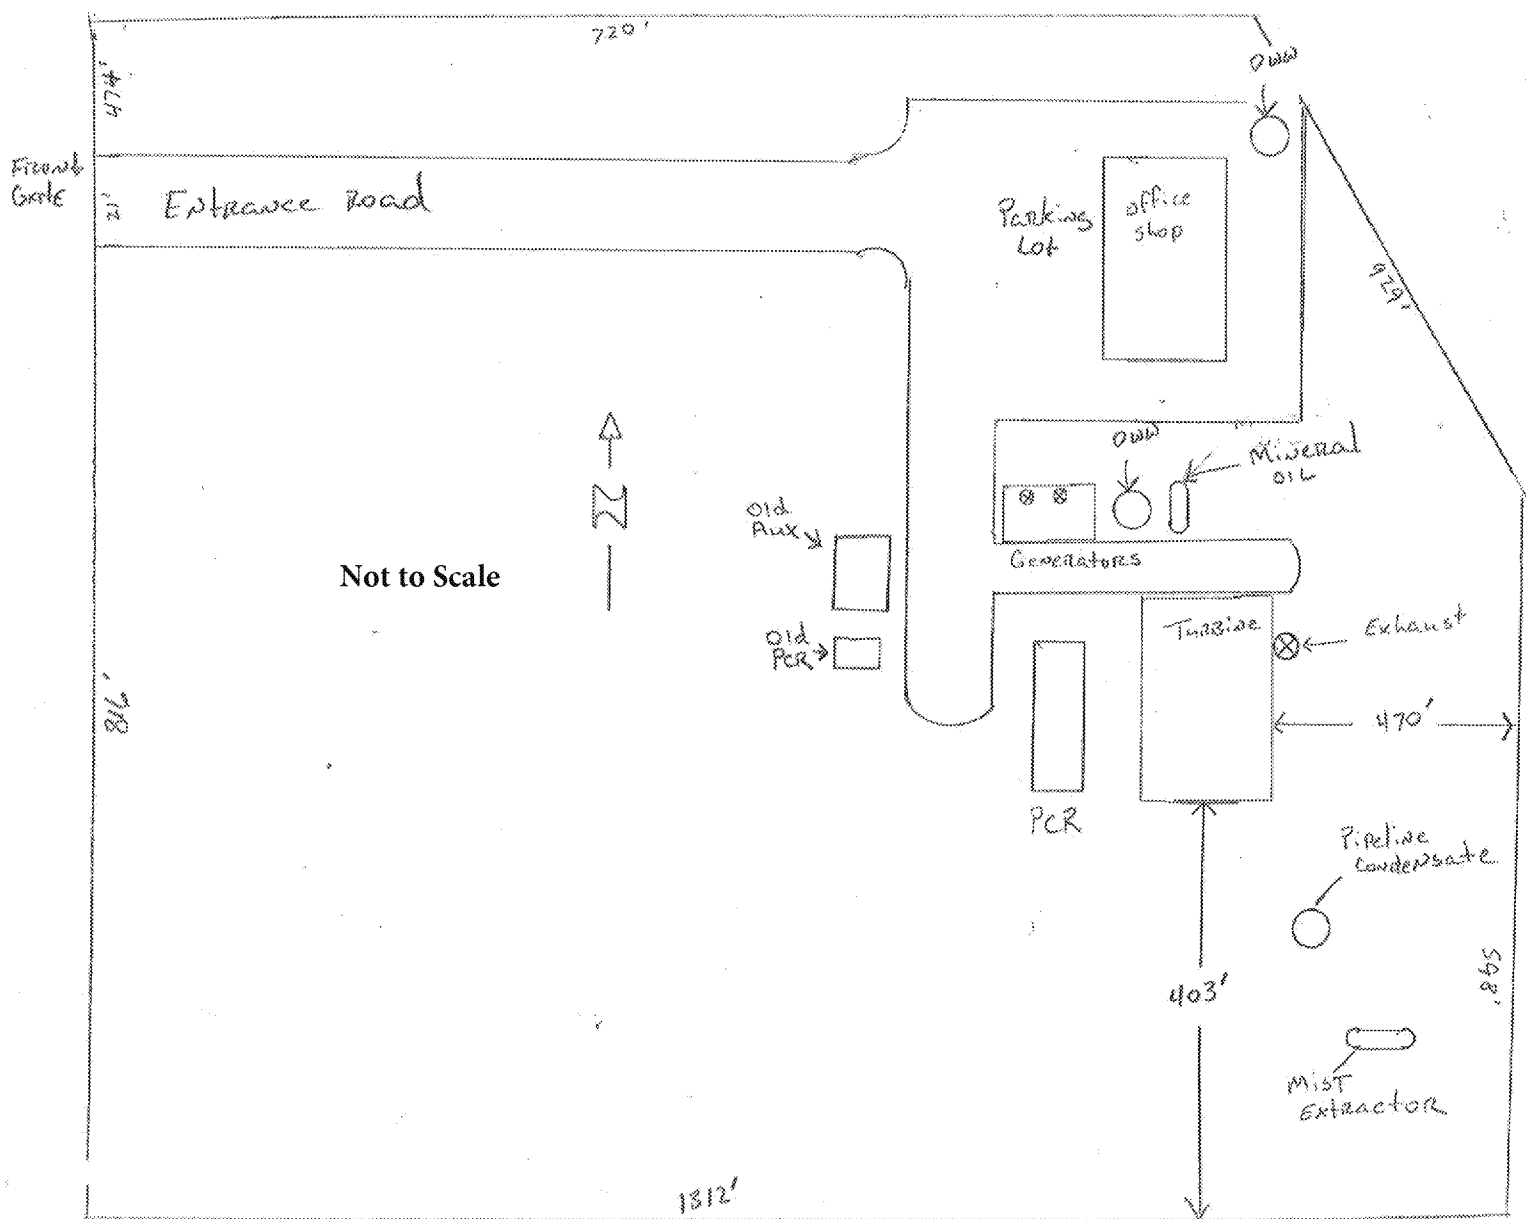 720'
474'
OWW
Front
Gate
21'
Entrance Road
Parking
Lot
office
shop
929'
OWW
Mineral
OIL
Old
Aux
N
Generators
Not to Scale
Old
PCR
Turbine
Exhaust
470'
PCR
Pipeline
Condensate
403'
598'
Mist
Extractor
1312'